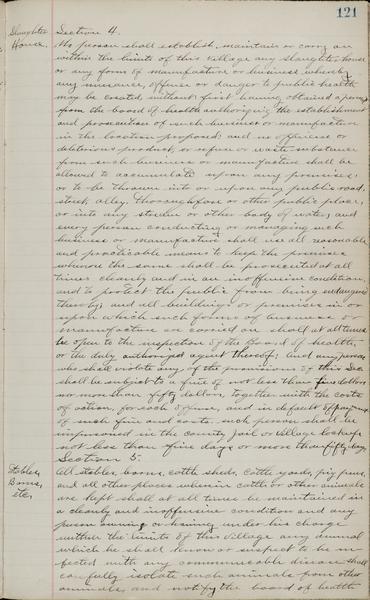 121
Slaughter Section 4.
Houses. No person shall establish, maintain or carry on
within the limits of this Village any slaughter house
or any form of manufacture or business whereby
any nuisance, offense or danger to public health
may be created without first having obtained a permit
from the board of health authorizing the establishment
and prosecution of such business or manufacture
in the location proposed; and no offensive or
deleterious product, or refuse or waste substance
from such business or manufacture shall be
allowed to accumulate upon any premises:
or to be thrown into or upon any public road,
street, alley, thoroughfare or other public place,
or into any stream or other body of water; and
every person conducting or managing such
business or manufacture shall use all reasonable
and practicable means to keep the premises
whereon the same shall be prosecuted at all
times cleanly and in an inoffensive condition,
and to protect the public from being endangered
thereby; and all buildings or premises in or
upon which such forms of business or
manufacture are carried on shall at all times
be open to the inspection of the Board of health,
or the duly authorized agent thereof; And any person
who shall violate any of the provisions of this Sec
shall be subject to a fine of not less than five dollars
nor more than fifty dollars, together with the costs
of action, for each offense, and in default of payment
of such fine and costs such person shall be
imprisoned in the county jail or village lockup
not less than five days or more than fifty days
Section 5.
Stables, All stables, barns, cattle sheds, cattle yards, pig pens,
Barns, and all other places wherein cattle or other animals
etc. are kept shall at all times be maintained in
a cleanly and inoffensive condition and any
person owning or having under his charge
within the limits of this village any animal
which he shall know or suspect to be in-
fected with any communicable disease shall
carefully isolate such animals from other
animals and notify the board of health